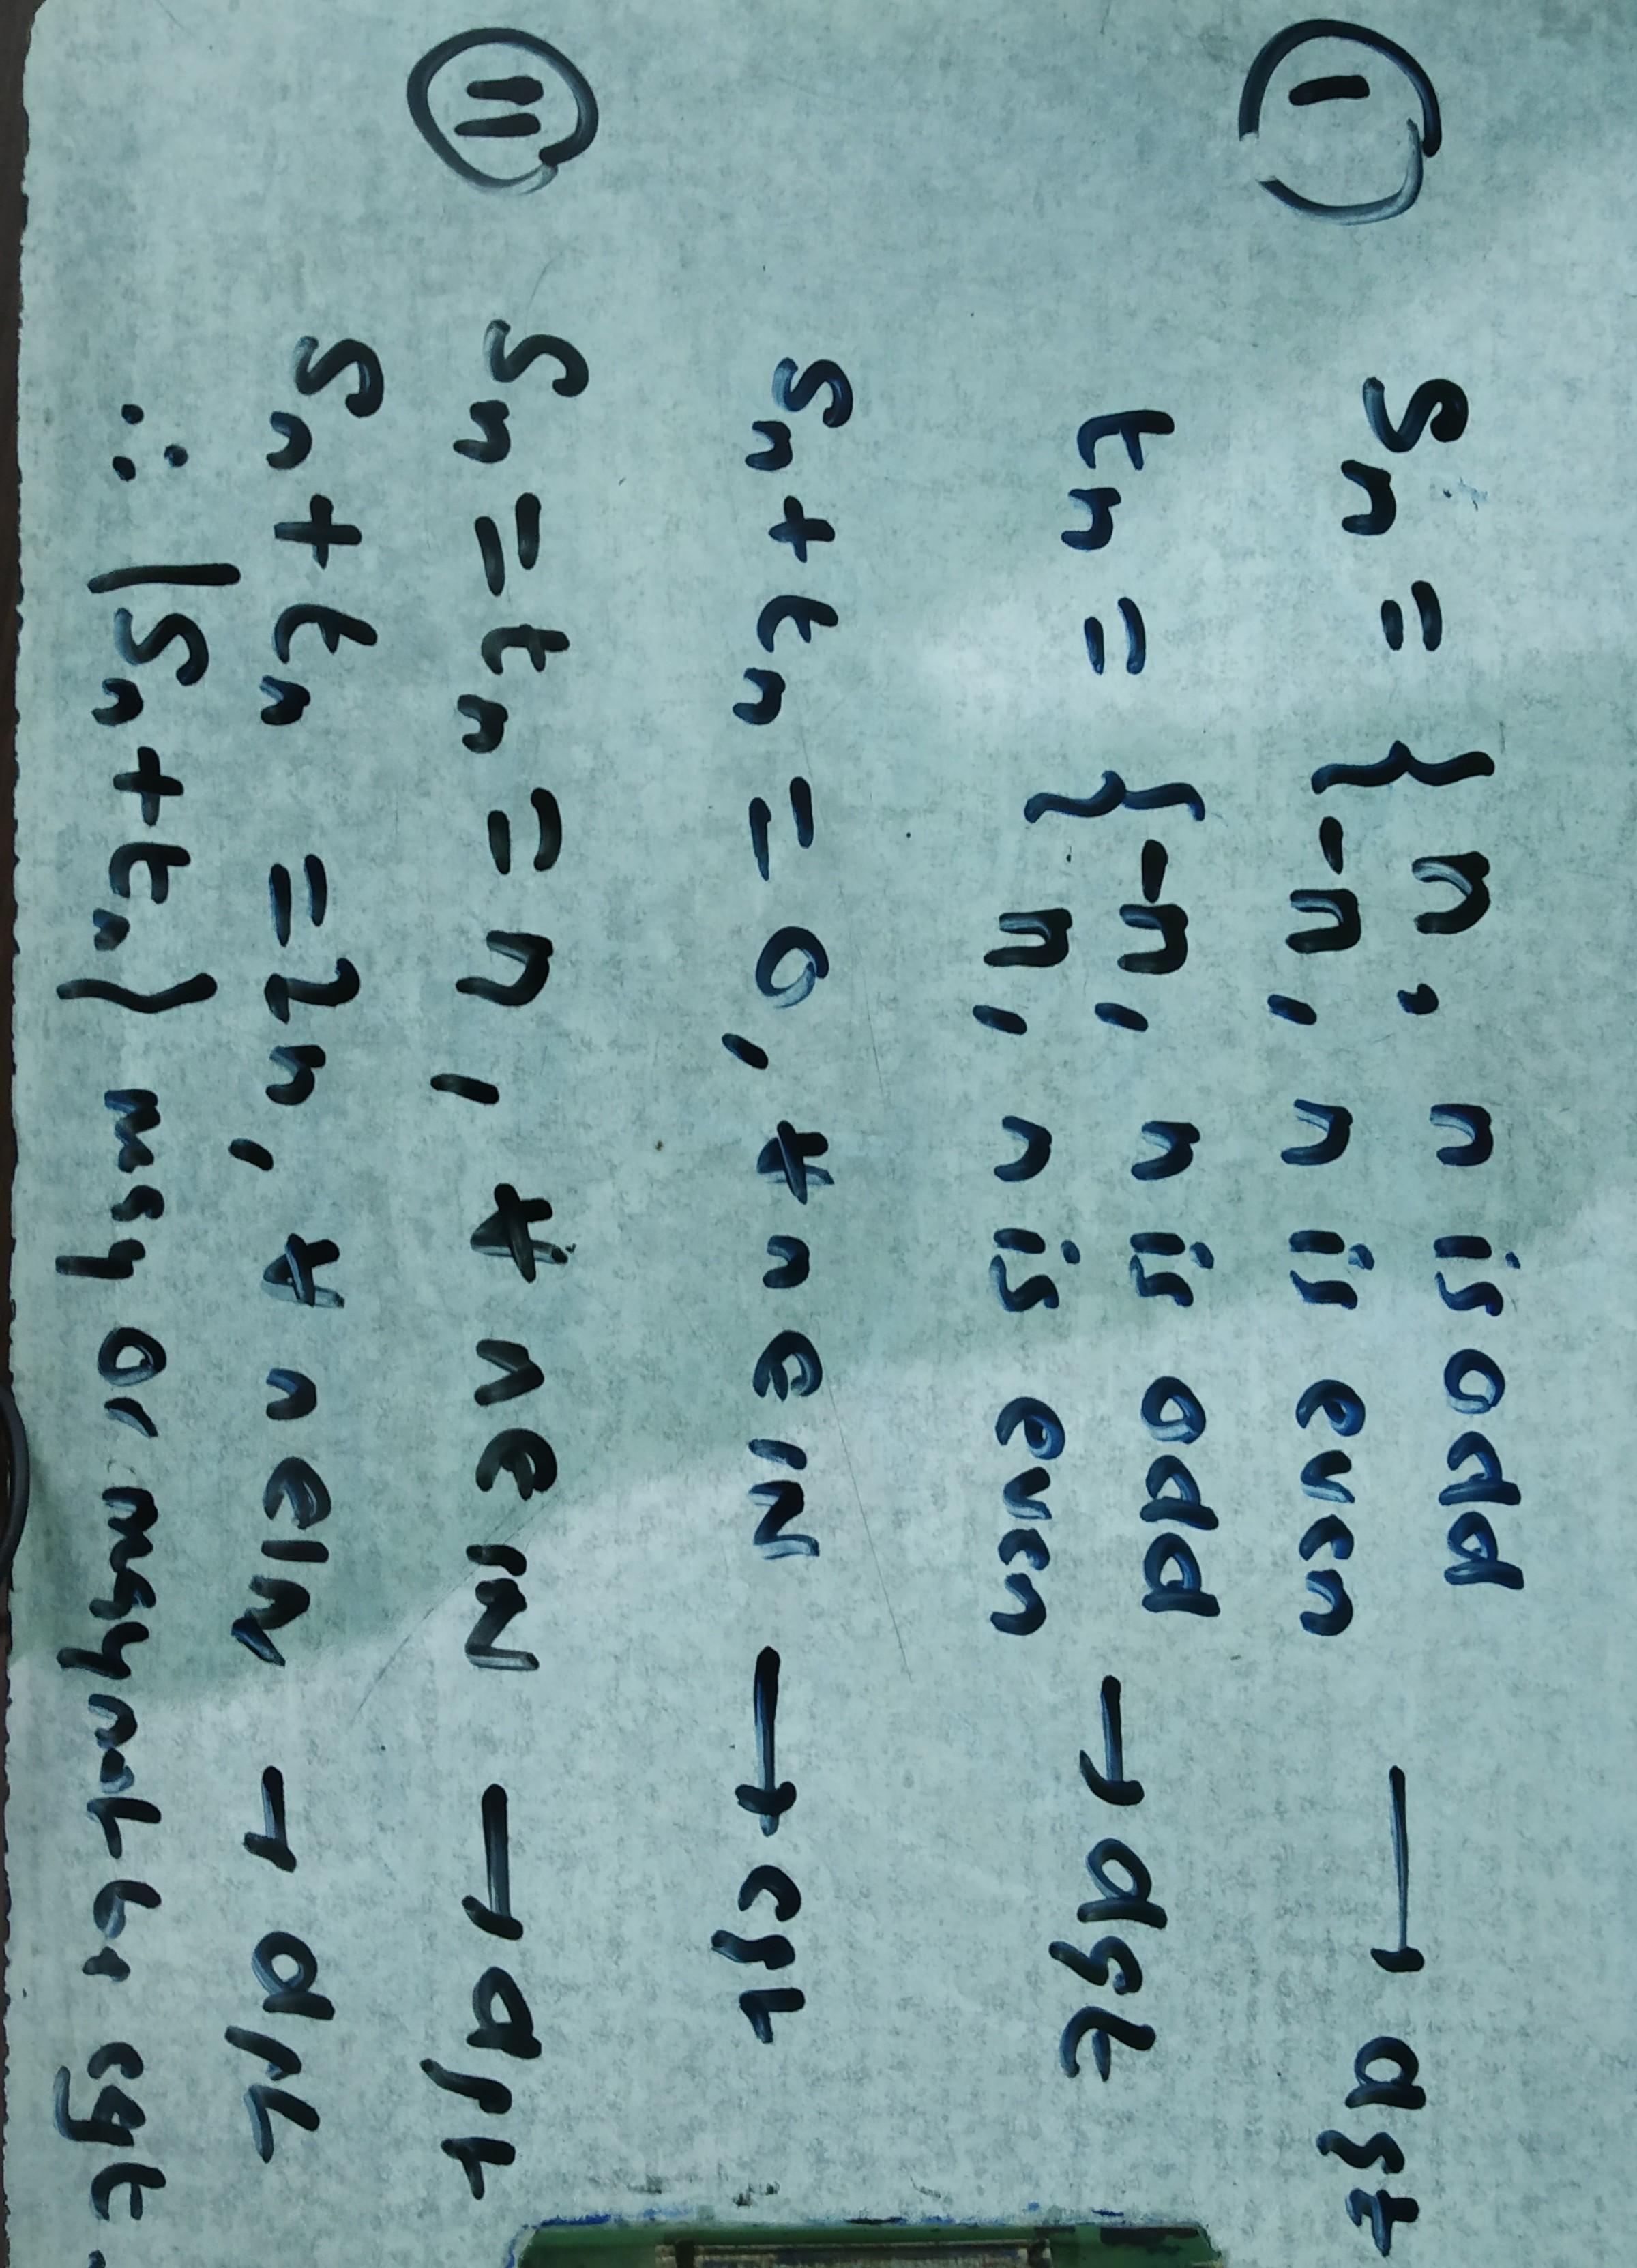 ① Sn = { n, n is odd
-n, n is even → dgt
tn = { -n, n is odd
n, n is even → dgt
Sn + tn = 0, ∀ n ∈ ℕ → cgt
② Sn = tn = n, ∀ n ∈ ℕ → dgt
Sn + tn = 2n, ∀ n ∈ ℕ → dgt
∴ {Sn + tn} may or may not be cgt.